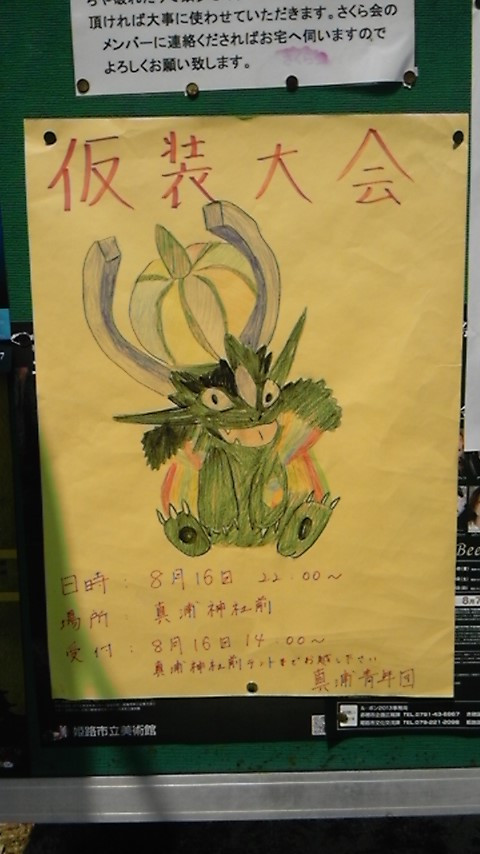 頂ければ大事に使わせていただきます。さくら会の
メンバーに連絡くださればお宅へ伺いますので
よろしくお願い致します。
仮装大会
日時：8月16日 22:00〜
場所 真浦神社前
受付：8月16日 14:00〜
真浦神社前テントまでお越し下さい
真浦青年団
姫路市立美術館